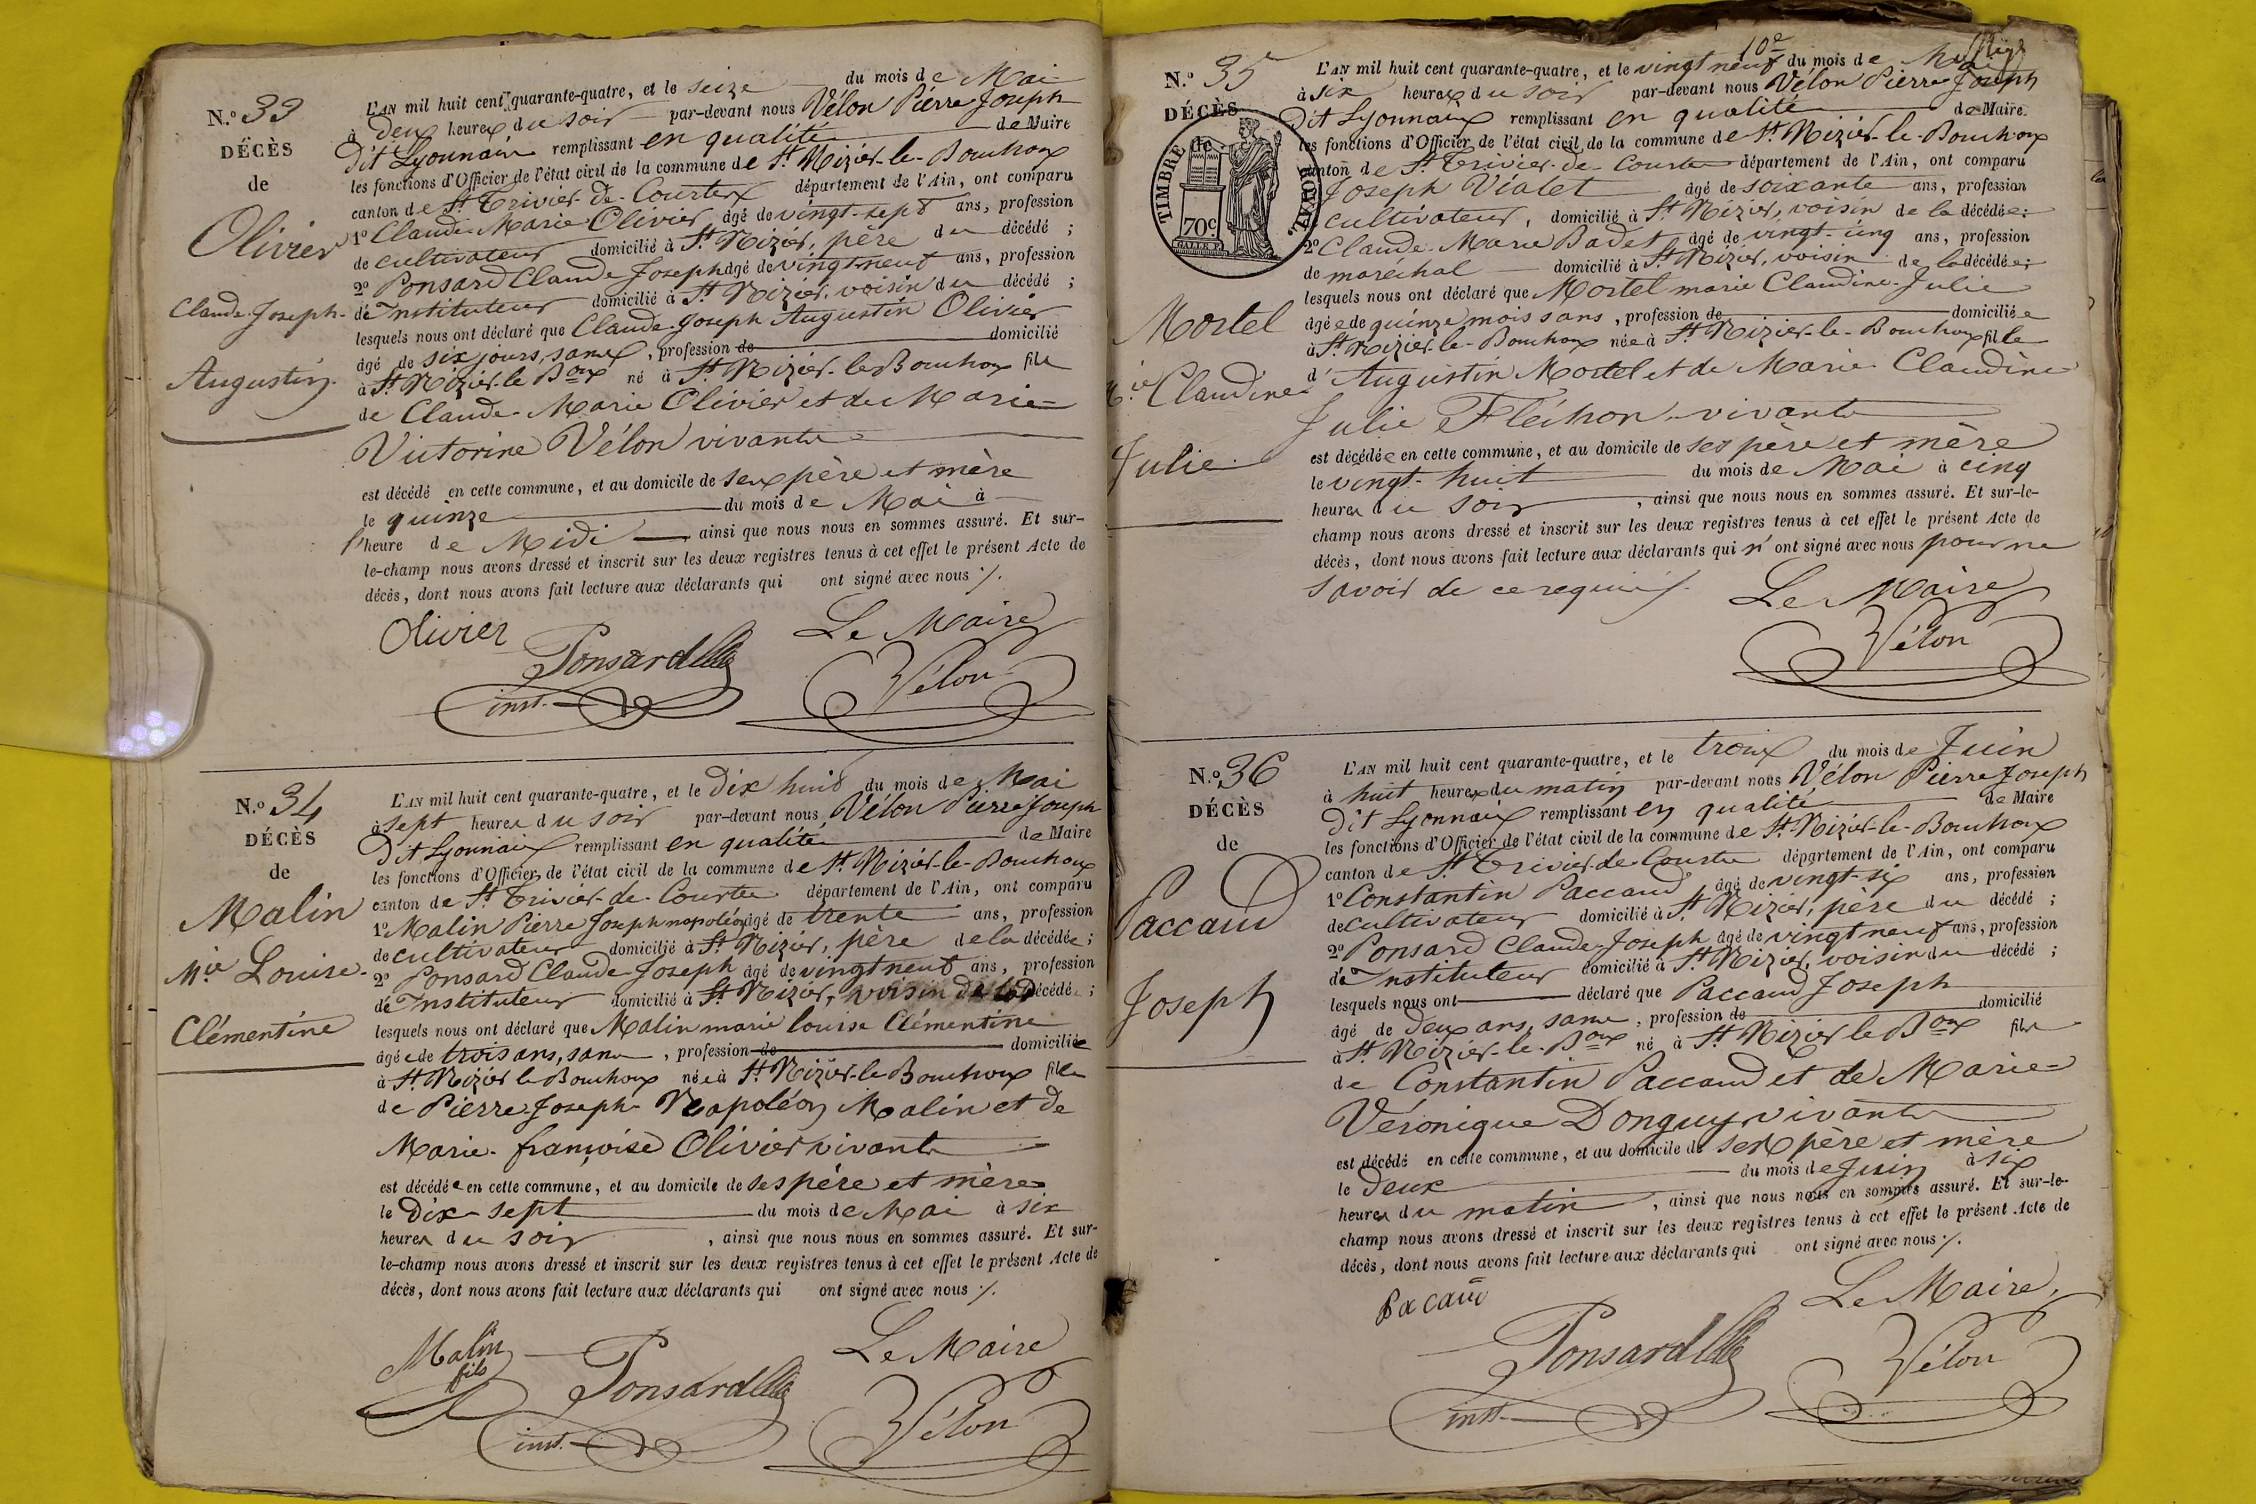 N.º 33
DÉCÈS
de
Olivier
Claude-Joseph-
Augustin.
L'AN mil huit cent quarante-quatre, et le seize du mois de Mai
à deux heures du soir par-devant nous Vélon Pierre Joseph
dit Lyonnais remplissant en qualité de Maire
les fonctions d'Officier de l'état civil de la commune de St Nizier-le-Bouchoux
canton de St Trivier-de-Courtes département de l'Ain, ont comparu
1º Claude-Marie Olivier âgé de vingt-sept ans, profession
de cultivateur domicilié à St Nizier, père du décédé ;
2º Ponsard Claude Joseph âgé de vingt neuf ans, profession
de Instituteur domicilié à St Nizier, voisin du décédé ;
lesquels nous ont déclaré que Claude-Joseph Augustin Olivier
âgé de six jours, sans , profession de domicilié
à St Nizier-le Boux né à St Nizier-le Bouchoux fils
de Claude-Marie Olivier et de Marie=
Victorine Vélon vivants
est décédé en cette commune, et au domicile de ses père et mère
le quinze du mois de Mai à
l'heure de Midi ainsi que nous nous en sommes assuré. Et sur-
le-champ nous avons dressé et inscrit sur les deux registres tenus à cet effet le présent Acte de
décès, dont nous avons fait lecture aux déclarants qui ont signé avec nous ./.
Olivier Ponsard inst. Le Maire
Vélon
N.º 34
DÉCÈS
de
Malin
Mie Louise-
Clémentine
L'AN mil huit cent quarante-quatre, et le dix huit du mois de Mai
à sept heures du soir par-devant nous Vélon Pierre Joseph
dit Lyonnais remplissant en qualité de Maire
les fonctions d'Officier de l'état civil de la commune de St Nizier-le-Bouchoux
canton de St Trivier-de-Courtes département de l'Ain, ont comparu
1º Malin Pierre Joseph napoléon âgé de trente ans, profession
de cultivateur domicilié à St Nizier, père de la décédée ;
2º Ponsard Claude-Joseph âgé de vingt neuf ans, profession
de Instituteur domicilié à St Nizier, voisin de la décédé ;
lesquels nous ont déclaré que Malin marie louise Clémentine
âgée de trois ans, sans , profession de domiciliée
à St Nizier le Bouchoux née à St Nizier-le Bouchoux fille
de Pierre-Joseph-Napoléon Malin et de
Marie-françoise Olivier vivants
est décédée en cette commune, et au domicile de ses père et mère
le Dix-sept du mois de Mai à six
heures du soir , ainsi que nous nous en sommes assuré. Et sur-
le-champ nous avons dressé et inscrit sur les deux registres tenus à cet effet le présent Acte de
décès, dont nous avons fait lecture aux déclarants qui ont signé avec nous ./.
Malin fils Ponsard inst. Le Maire
Vélon
10e
N.º 35
DÉCÈS
de
TIMBRE ROYAL.
70c
Mortel
Mie Claudine
Julie.
L'AN mil huit cent quarante-quatre, et le vingt neuf du mois de Mai
à six heures du soir par-devant nous Vélon Pierre Joseph
dit Lyonnais remplissant en qualité de Maire
les fonctions d'Officier de l'état civil de la commune de St Nizier-le-Bouchoux
canton de St Trivier-de-Courtes département de l'Ain, ont comparu
Joseph Vialet âgé de soixante ans, profession
cultivateur, domicilié à St Nizier, voisin de la décédée ;
2º Claude-Marie Badet âgé de vingt-cinq ans, profession
de maréchal domicilié à St Nizier, voisin de la décédée ;
lesquels nous ont déclaré que Mortel marie Claudine-Julie
âgée de quinze mois sans , profession de domiciliée
à St Nizier-le-Bouchoux née à St Nizier-le-Bouchoux fille
d'Augustin Mortel et de Marie Claudine
Julie Fléchon vivants
est décédée en cette commune, et au domicile de ses père et mère
le vingt-huit du mois de Mai à cinq
heures du soir , ainsi que nous nous en sommes assuré. Et sur-le-
champ nous avons dressé et inscrit sur les deux registres tenus à cet effet le présent Acte de
décès, dont nous avons fait lecture aux déclarants qui n'ont signé avec nous pour ne
savoir de ce requis ./.
Le Maire
Vélon
N.º 36
DÉCÈS
de
Paccaud
Joseph
L'AN mil huit cent quarante-quatre, et le trois du mois de Juin
à huit heures du matin par-devant nous Vélon Pierre Joseph
dit Lyonnais remplissant en qualité de Maire
les fonctions d'Officier de l'état civil de la commune de St Nizier-le-Bouchoux
canton de St Trivier-de-Courtes département de l'Ain, ont comparu
1º Constantin Paccaud âgé de vingt-six ans, profession
de cultivateur domicilié à St Nizier, père du décédé ;
2º Ponsard Claude-Joseph âgé de vingt neuf ans, profession
de Instituteur domicilié à St Nizier, voisin du décédé ;
lesquels nous ont déclaré que Paccaud Joseph
âgé de deux ans, sans , profession de domicilié
à St Nizier-le-Boux né à St Nizier le Boux fils
de Constantin Paccaud et de Marie=
Véronique Donguy vivants
est décédé en cette commune, et au domicile de ses père et mère
le Deux du mois de Juin à six
heures du matin , ainsi que nous nous en sommes assuré. Et sur-le-
champ nous avons dressé et inscrit sur les deux registres tenus à cet effet le présent Acte de
décès, dont nous avons fait lecture aux déclarants qui ont signé avec nous ./.
Pacaud Ponsard inst. Le Maire,
Vélon